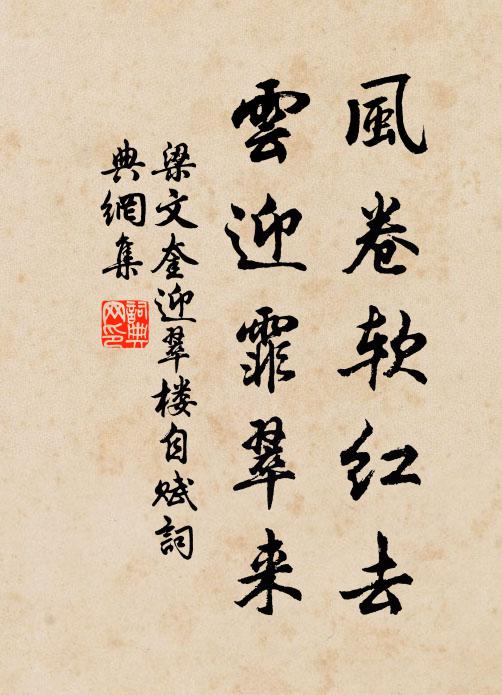 風卷软红去
雲迎霏翠来
梁文奎迎翠楼自赋詞
典網集
詞典网印